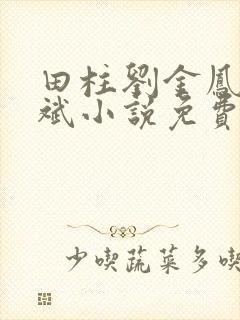 田柱劉金鳳
斌小說免費
少喫蔬菜多喫